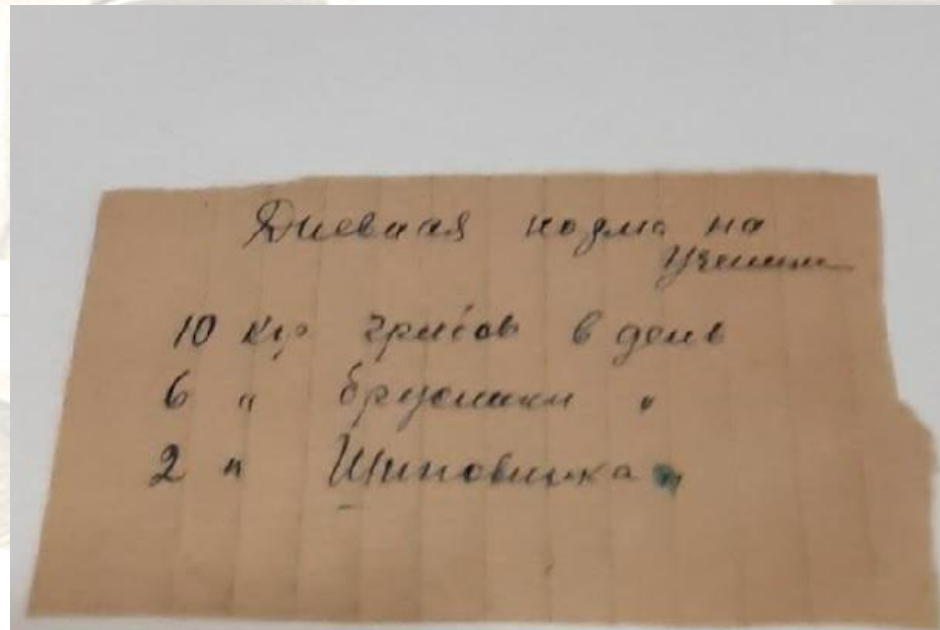 Дневная норма на
ученика
10 кгр грибов в день
6 " брусники "
2 " Шиповника "